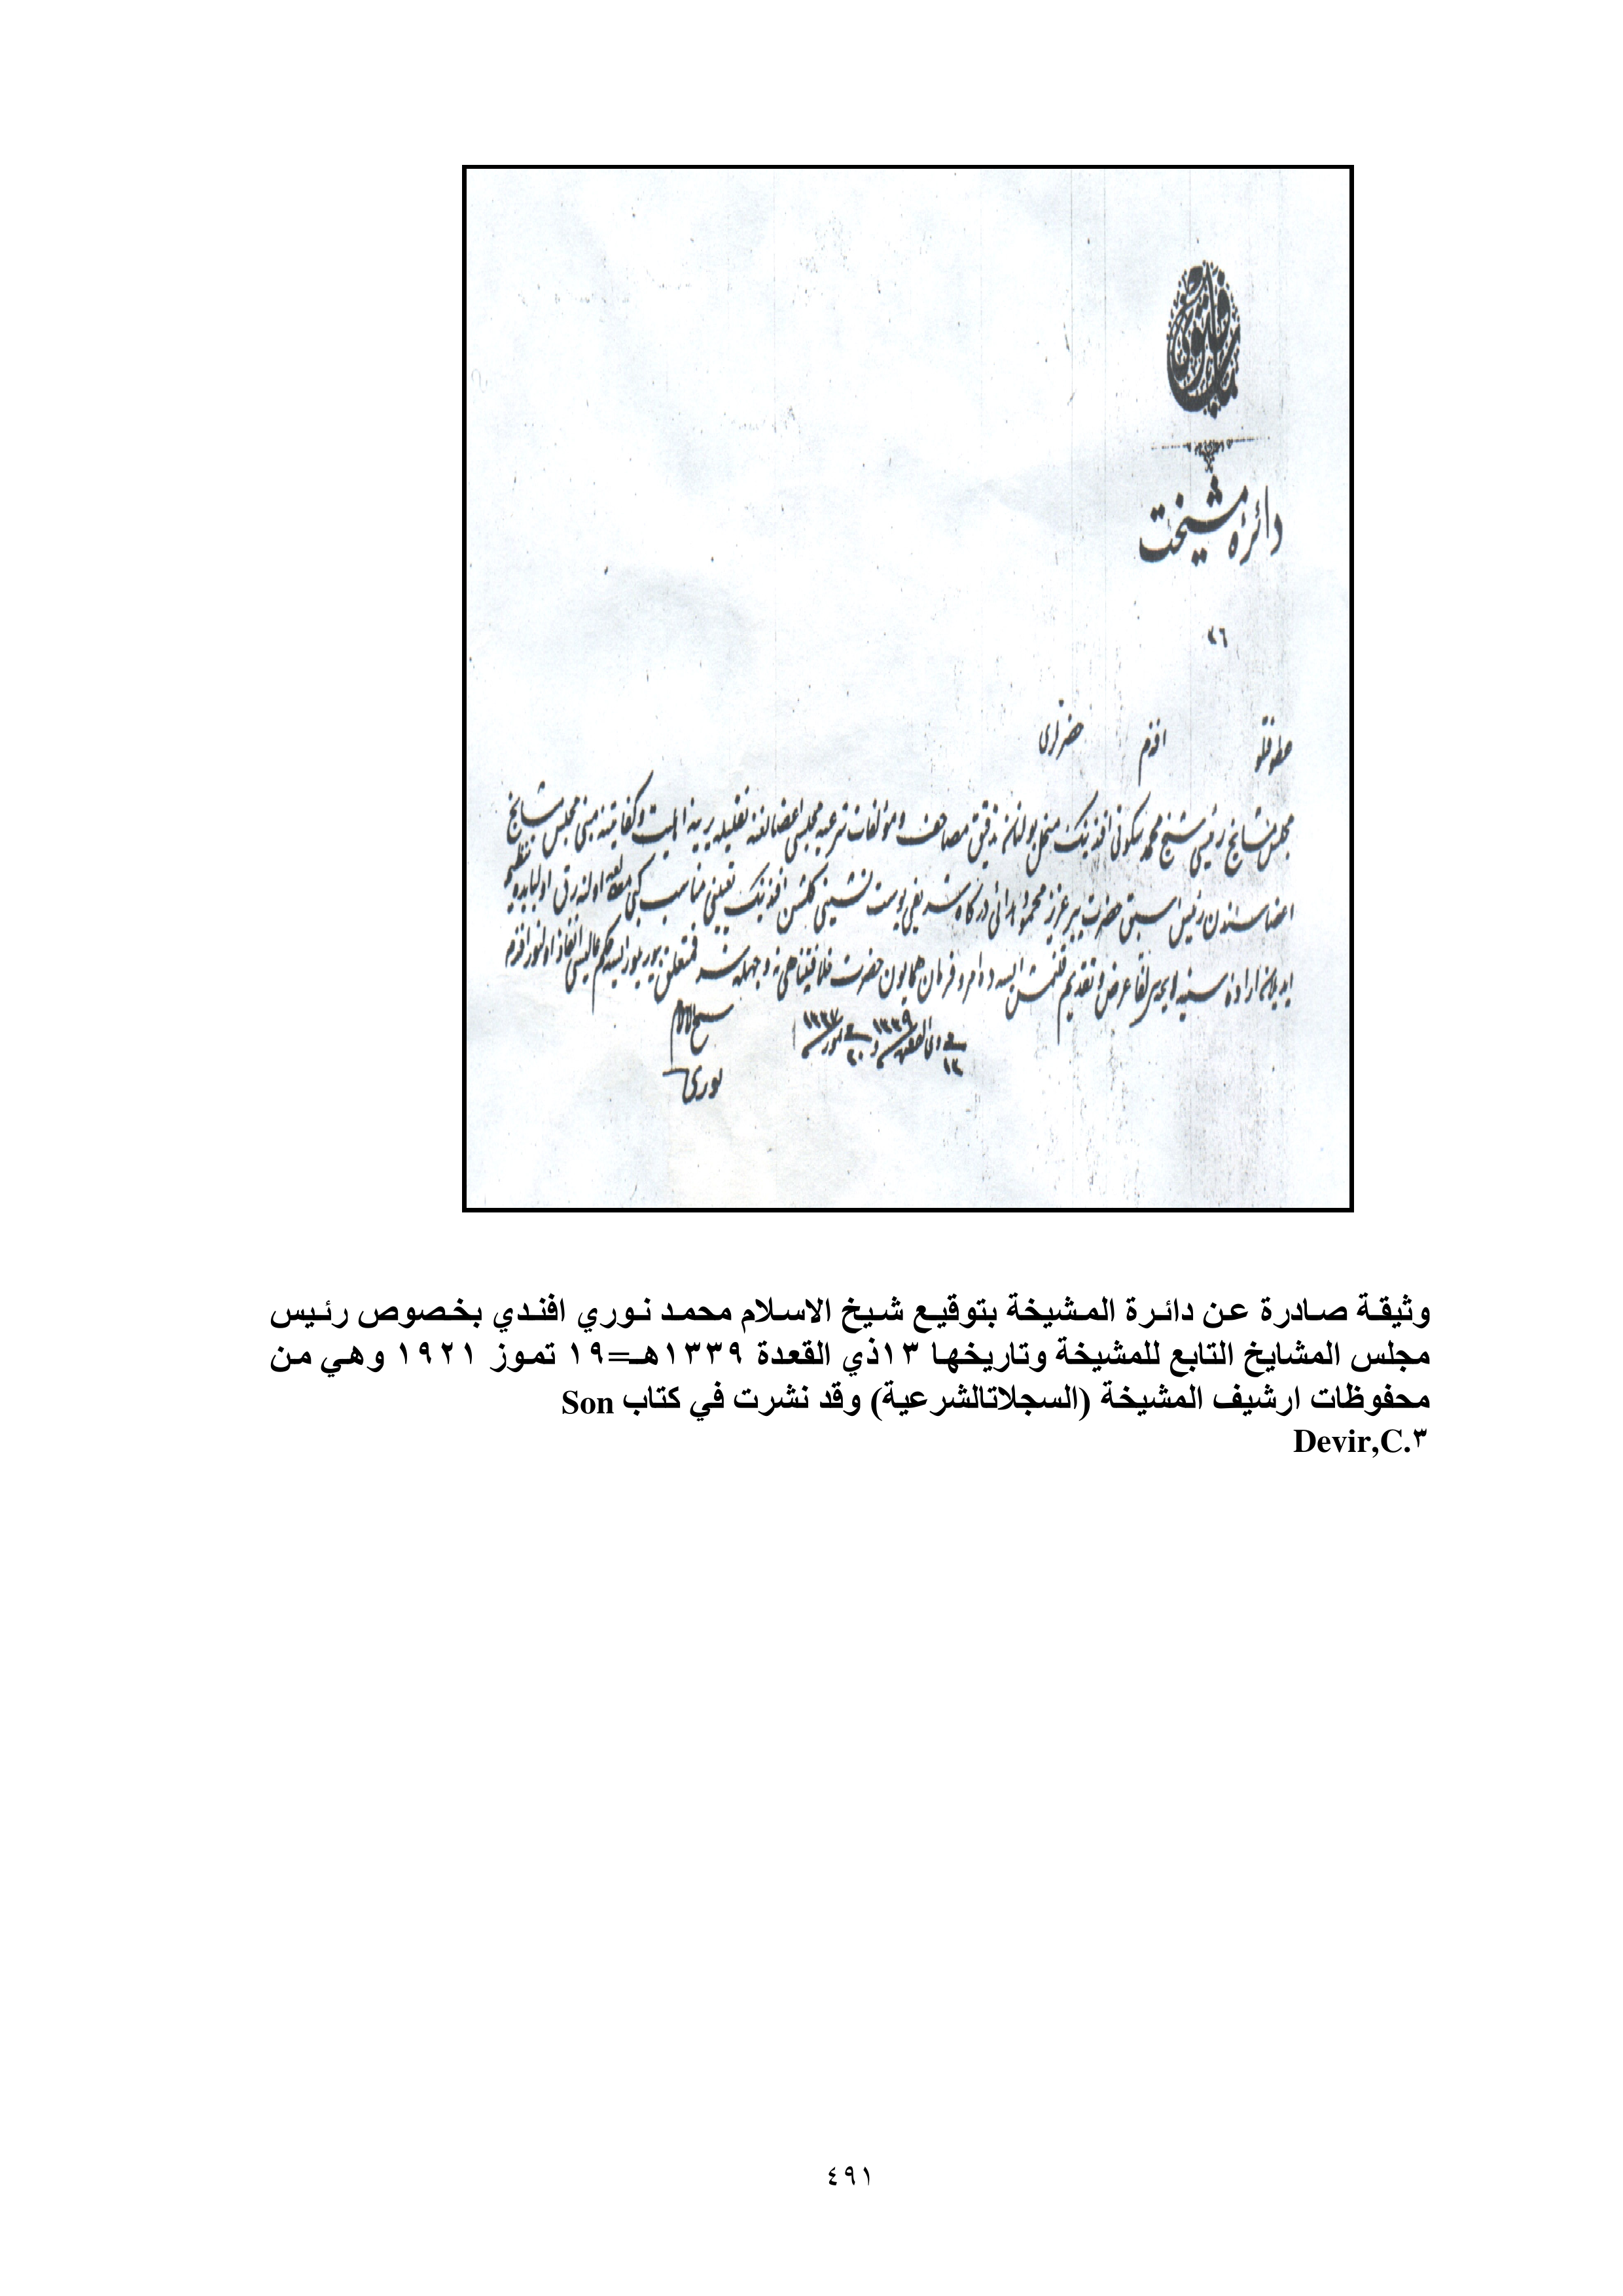 دائرهٔ مشيخت
٣٦
عطوفتلو افندم حضرتلرى
مجلس مشايخ رئيسى شيخ محمد سكوتى افندينك منحل بولنان تدقيق مصاحف ومؤلفات شرعيه مجلسى اعضالغنه نقليله يرينه اهليت وكفايتنه مبنى مجلس مشايخ
اعضاسندن رئيس اسبق حضرت پير عزيز محمود هدائى درگاه شريفى پوست نشينى گلشن افندينك تعيينى مناسب كبى مطالعه اولنه رق اولبابده تنظيم
ايديلان ارادهٔ سنيه لايحه سى لفا عرض وتقديم قلنمش ايسه ده امر وفرمان همايون حضرت خلافتپناهى نه وجهله شرفمتعلق بيوريلور ايسه حكم عاليسى انفاذ اولنور افندم
فى ١٣ ذى القعده سنه ١٣٣٩ و فى ٢٠ تموز سنه ١٣٣٧
شيخ الاسلام
نورى
وثيقة صادرة عن دائرة المشيخة بتوقيع شيخ الاسلام محمد نوري افندي بخصوص رئيس
مجلس المشايخ التابع للمشيخة وتاريخها ١٣ذي القعدة ١٣٣٩هـ=١٩ تموز ١٩٢١ وهي من
محفوظات ارشيف المشيخة (السجلاتالشرعية) وقد نشرت في كتاب Son
Devir,C.٣
٤٩١